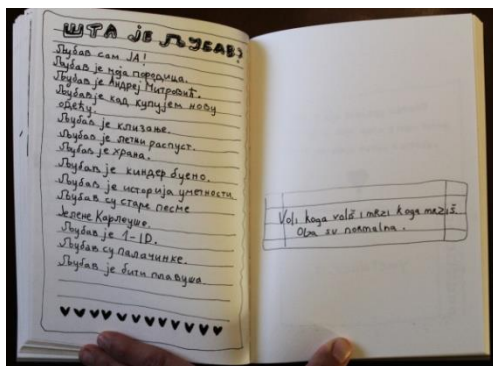 ШТА ЈЕ ЉУБАВ?
Љубав сам ЈА!
Љубав је моја породица.
Љубав је Андреј Митровић.
Љубав је кад купујем нову
одећу.
Љубав је клизање.
Љубав је летњи распуст.
Љубав је храна.
Љубав је киндер буено.
Љубав је историја уметности
Љубав су старе песме
Јелене Карлеуше.
Љубав је 1-ID.
Љубав су палачинке.
Љубав је бити плавуша.
Voli koga voliš i mrzi koga mrziš.
Oba su normalna.